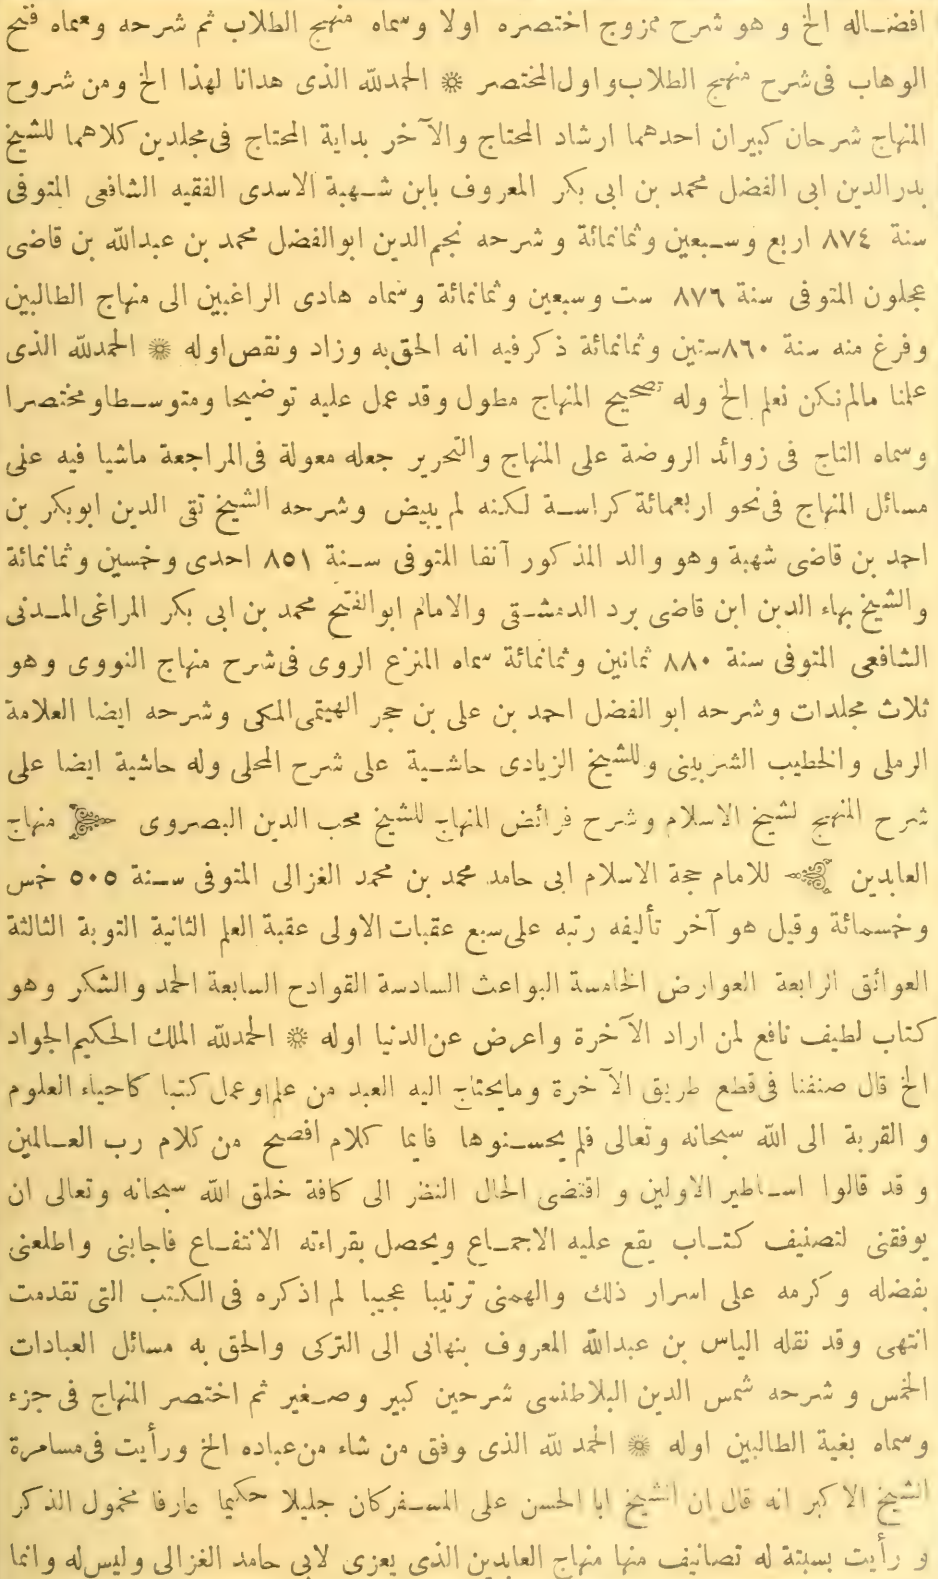 افضاله الخ و هو شرح ممزوج اختصره اولا وسماه منهج الطلاب ثم شرحه وسماه فتح
الوهاب فى شرح منهج الطلاب واول المختصر ❋ الحمدلله الذى هدانا لهذا الخ ومن شروح
المنهاج شرحان كبيران احدهما ارشاد المحتاج والآخر بداية المحتاج فى مجلدين كلاهما للشيخ
بدرالدين ابى الفضل محمد بن ابى بكر المعروف بابن شهبة الاسدى الفقيه الشافعى المتوفى
سنة ٨٧٤ اربع وسبعين وثمانمائة و شرحه نجم الدين ابوالفضل محمد بن عبدالله بن قاضى
عجلون المتوفى سنة ٨٧٦ ست وسبعين وثمانمائة وسماه هادى الراغبين الى منهاج الطالبين
وفرغ منه سنة ٨٦٠ ستين وثمانمائة ذكر فيه انه الحق به وزاد ونقص اوله ❋ الحمدلله الذى
علمنا مالم نكن نعلم الخ وله تصحيح المنهاج مطول وقد عمل عليه توضيحا ومتوسطا ومختصرا
وسماه التاج فى زوائد الروضة على المنهاج والتحرير جعله معولة فى المراجعة ماشيا فيه على
مسائل المنهاج فى نحو اربعمائة كراسة لكنه لم يبيض وشرحه الشيخ تقى الدين ابوبكر بن
احمد بن قاضى شهبة وهو والد المذكور آنفا المتوفى سنة ٨٥١ احدى وخمسين وثمانمائة
والشيخ بهاء الدين ابن قاضى برد الدمشقى والامام ابوالفتح محمد بن ابى بكر المراغى المدنى
الشافعى المتوفى سنة ٨٨٠ ثمانين وثمانمائة سماه المنزع الروى فى شرح منهاج النووى وهو
ثلاث مجلدات وشرحه ابو الفضل احمد بن على بن حجر الهيتمى المكى وشرحه ايضا العلامة
الرملى والخطيب الشربينى وللشيخ الزيادى حاشية على شرح المحلى وله حاشية ايضا على
شرح المنهج لشيخ الاسلام وشرح فرائض المنهاج للشيخ محب الدين البصروى منهاج
العابدين للامام حجة الاسلام ابى حامد محمد بن محمد الغزالى المتوفى سنة ٥٠٥ خمس
وخمسمائة وقيل هو آخر تأليفه رتبه على سبع عقبات الاولى عقبة العلم الثانية التوبة الثالثة
العوائق الرابعة العوارض الخامسة البواعث السادسة القوادح السابعة الحمد والشكر وهو
كتاب لطيف نافع لمن اراد الآخرة واعرض عن الدنيا اوله ❋ الحمدلله الملك الحكيم الجواد
الخ قال صنفنا فى قطع طريق الآخرة ومايحتاج اليه العبد من علم وعمل كتبا كاحياء العلوم
و القربة الى الله سبحانه وتعالى فلم يحسنوها فايما كلام افصح من كلام رب العالمين
و قد قالوا اساطير الاولين و اقتضى الحال النظر الى كافة خلق الله سبحانه وتعالى ان
يوفقنى لتصنيف كتاب يقع عليه الاجماع ويحصل بقراءته الانتفاع فاجابنى واطلعنى
بفضله وكرمه على اسرار ذلك والهمنى ترتيبا عجيبا لم اذكره فى الكتب التى تقدمت
انتهى وقد نقله الياس بن عبدالله المعروف بنهانى الى التركى والحق به مسائل العبادات
الخمس و شرحه شمس الدين البلاطنسى شرحين كبير وصغير ثم اختصر المنهاج فى جزء
وسماه بغية الطالبين اوله ❋ الحمد لله الذى وفق من شاء من عباده الخ ورأيت فى مسامرة
الشيخ الاكبر انه قال ان الشيخ ابا الحسن على المسفر كان جليلا حكيما عارفا مخمول الذكر
و رأيت بسبتة له تصانيف منها منهاج العابدين الذى يعزى لابى حامد الغزالى وليس له وانما